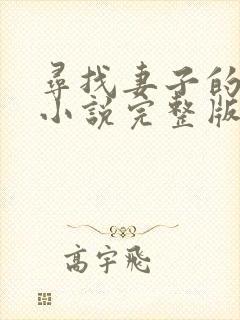 尋找妻子的
小說完整版
高宇飛